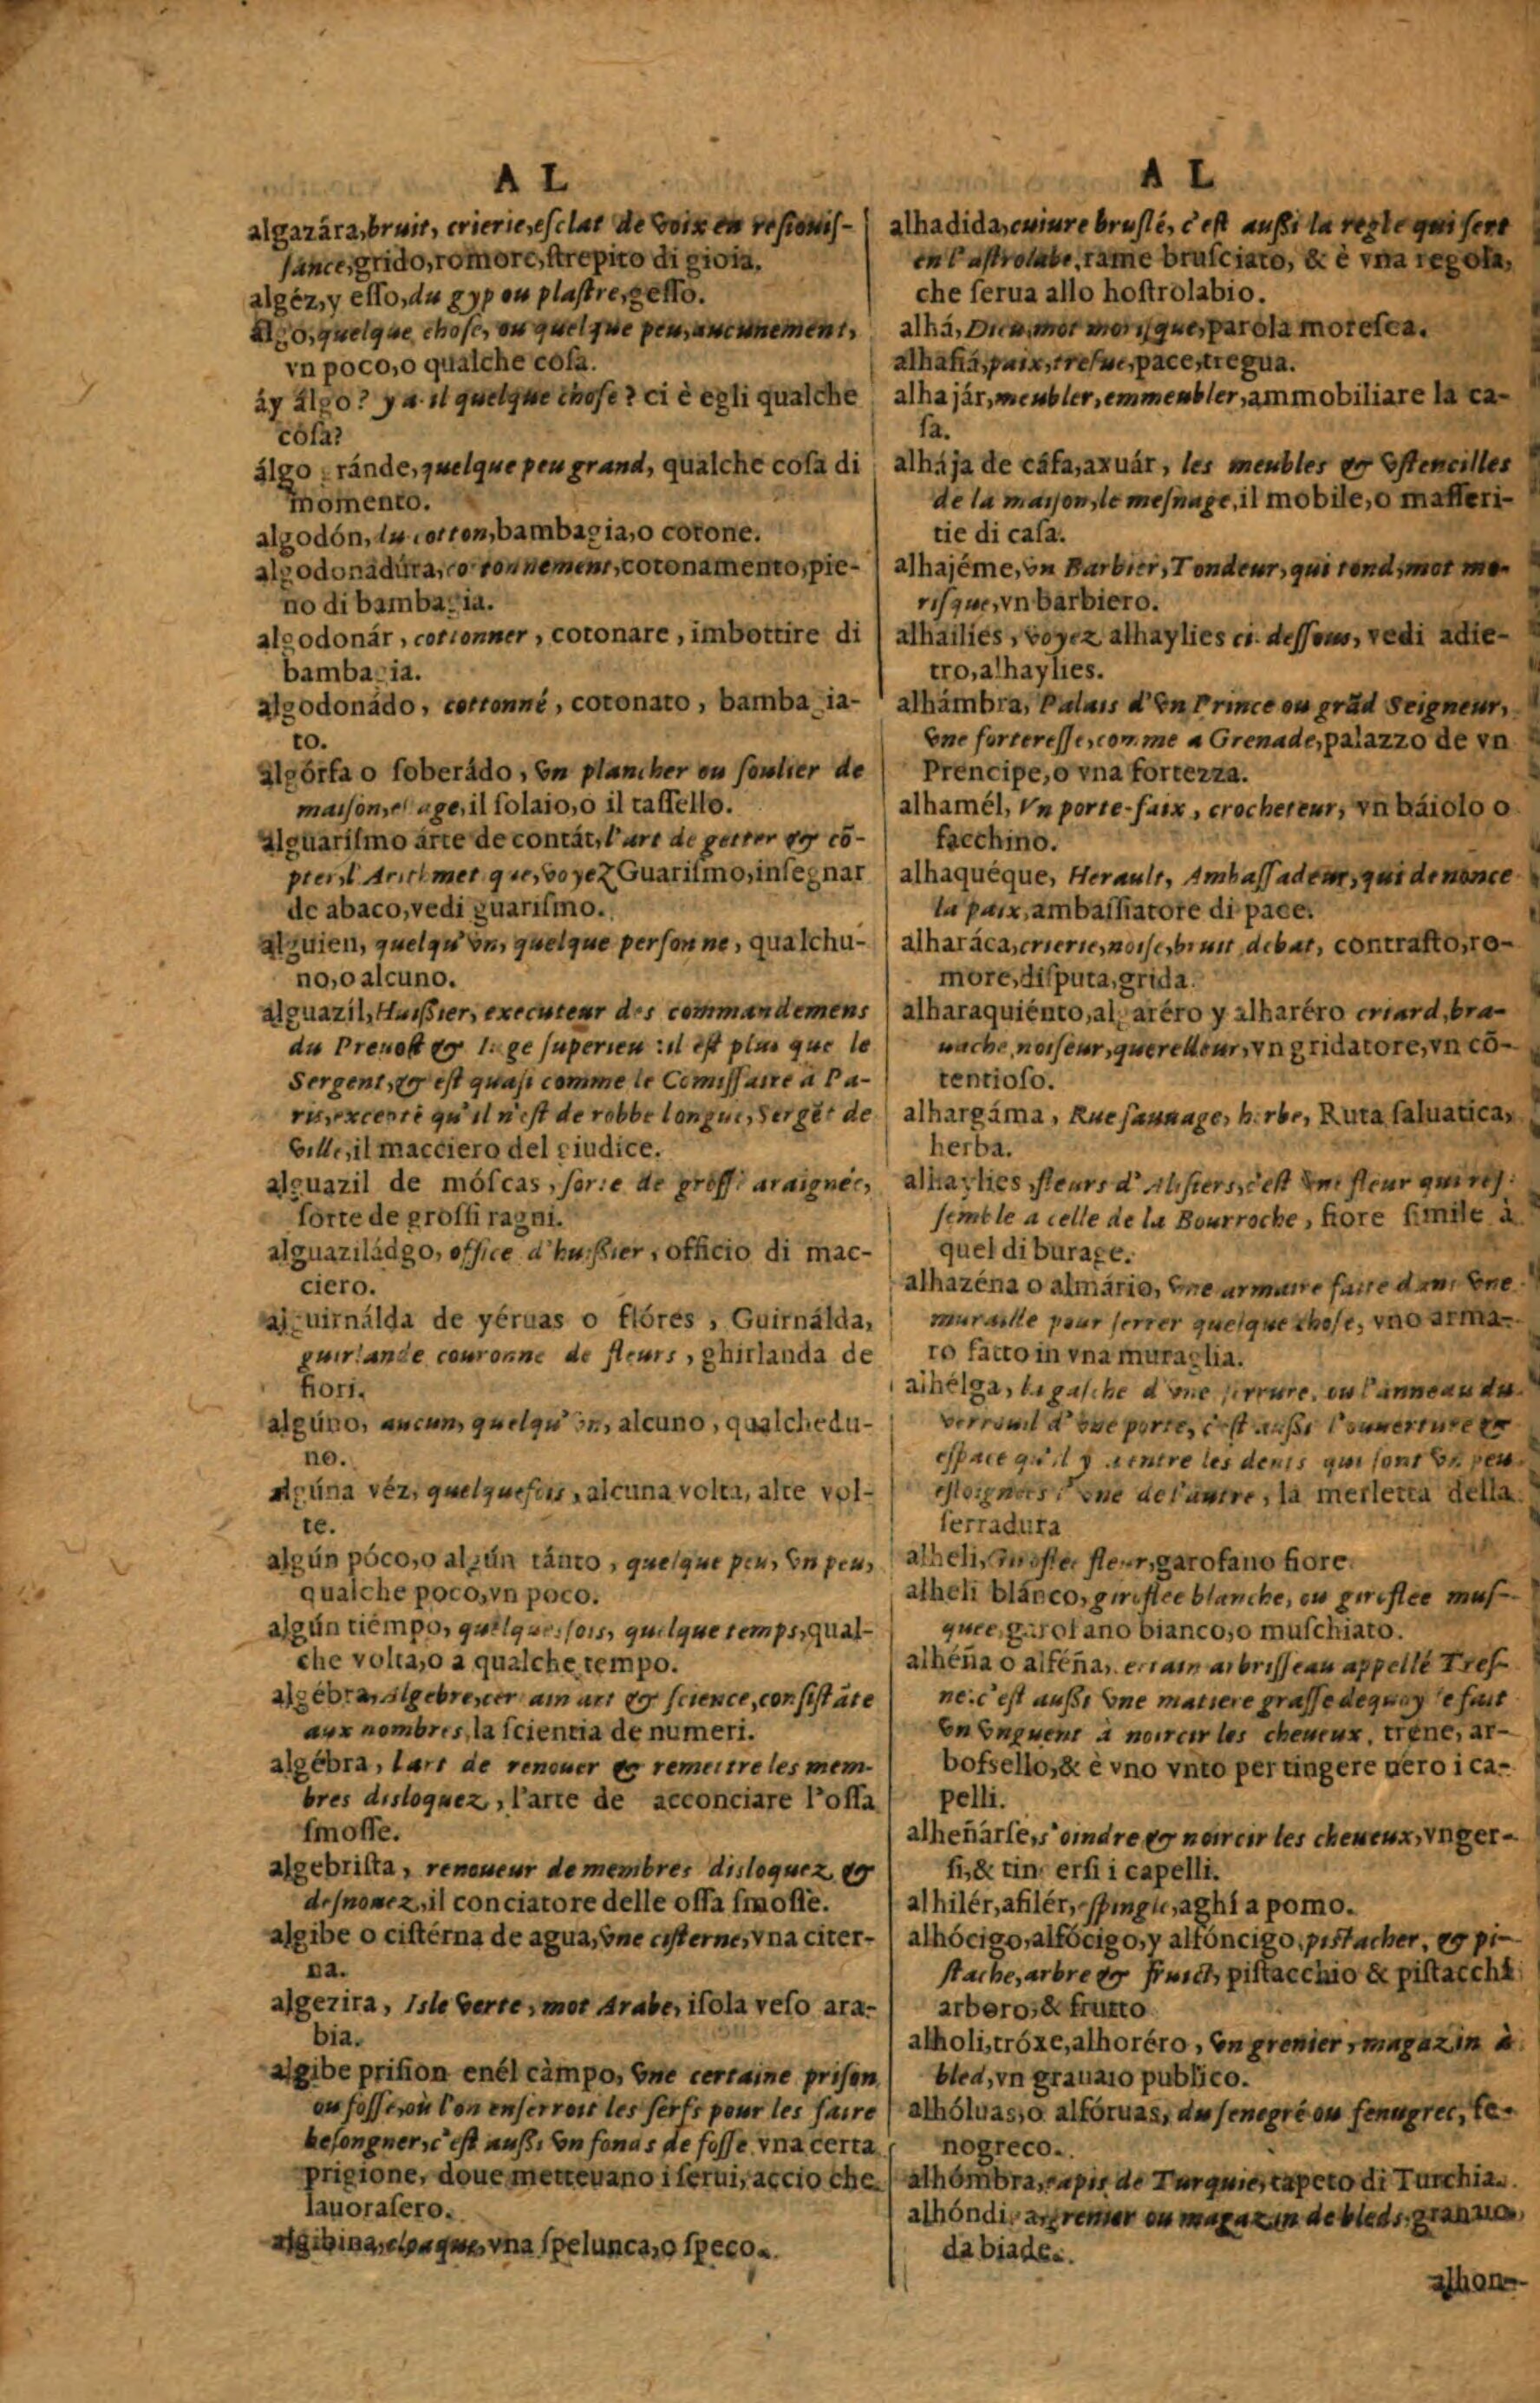 A L
algazára, bruit, crierie, esclat de voix en resiouis-
sance, grido, romore, strepito di gioia.
algéz, y esso, du gyp ou plastre, gesso.
algo, quelque chose, ou quelque peu, aucunement,
vn poco, o qualche cosa.
áy álgo? y a-il quelque chose? ci è egli qualche
cósa?
álgo ránde, quelque peu grand, qualche cosa di
momento.
algodón, du cotton, bambagia, o cotone.
algodonadúra, cotonnement, cotonamento, pie-
no di bambagia.
algodonár, cottonner, cotonare, imbottire di
bambagia.
algodonádo, cottonné, cotonato, bambagia-
to.
algórfa o soberádo, vn plancher ou soulier de
maison, estage, il solaio, o il tassello.
alguarismo árte de contár, l'art de getter & cō-
pter, l'Arithmetique, voyez Guarismo, insegnar
de abaco, vedi guarismo.
alguien, quelqu'vn, quelque personne, qualchu-
no, o alcuno.
alguazil, Huissier, executeur des commandemens
du Preuost & Iuge superieu : il est plus que le
Sergent, & est quasi comme le Comissaire à Pa-
ris, excepté qu'il n'est de robbe longue, Sergēt de
ville, il macciero del giudice.
alguazil de móscas, sorte de grosse araignée,
sorte de grossi ragni.
alguaziládgo, office d'huissier, officio di mac-
ciero.
alguirnálda de yéruas o flóres, Guirnálda,
guirlande couronne de fleurs, ghirlanda de
fiori.
algúno, aucun, quelqu'vn, alcuno, qualchedu-
no.
algúna véz, quelquefois, alcuna volta, alte vol-
te.
algún póco, o algún tánto, quelque peu, vn peu,
qualche poco, vn poco.
algún tiémpo, quelquesfois, quelque temps, qual-
che volta, o a qualche tempo.
algébra, Algebre, certain art & science, consistāte
aux nombres, la scientia de numeri.
algébra, l'art de renouer & remettre les mem-
bres disloquez, l'arte de acconciare l'ossa
smosse.
algebrista, renoueur de membres disloquez &
desnouez, il conciatore delle ossa smosse.
algibe o cistérna de agua, vne cisterne, vna citer-
na.
algezira, Isle verte, mot Arabe, isola veso ara-
bia.
algibe prision enél càmpo, vne certaine prison
ou fosse, où l'on enserroit les serfs pour les faire
besongner, c'est aussi vn fonds de fosse, vna certa
prigione, doue metteuano i serui, accio che
lauorasero.
algibina, cloaque, vna spelunca, o speco.
A L
alhadida, cuiure bruslé, c'est aussi la regle qui sert
en l'astrolabe, rame brusciato, & è vna regola,
che serua allo hostrolabio.
alhá, Dieu, mot morisque, parola moresca.
alhafiá, paix, trefue, pace, tregua.
alhajár, meubler, emmeubler, ammobiliare la ca-
sa.
alhája de cása, axuár, les meubles & vstencilles
de la maison, le mesnage, il mobile, o masseri-
tie di casa.
alhajéme, vn Barbier, Tondeur, qui tond, mot mo-
risque, vn barbiero.
alhailies, voyez alhaylies ci dessous, vedi adie-
tro, alhaylies.
alhámbra, Palais d'vn Prince ou grād Seigneur,
vne forteresse, comme a Grenade, palazzo de vn
Prencipe, o vna fortezza.
alhamél, Vn porte-faix, crocheteur, vn báiolo o
facchino.
alhaquéque, Herault, Ambassadeur, qui denonce
la paix, ambassiatore di pace.
alharáca, crierie, noise, bruit, debat, contrasto, ro-
more, disputa, grida.
alharaquiénto, algaréro y alharéro criard, bra-
uache, noiseur, querelleur, vn gridatore, vn cō-
tentioso.
alhargáma, Rue sauuage, herbe, Ruta saluatica,
herba.
alhaylies, fleurs d'Alisiers, c'est vne fleur qui res-
semble a celle de la Bourroche, fiore simile à
quel di burage.
alhazéna o almário, vne armaire faite dans vne
muraille pour serrer quelque chose, vno arma-
ro fatto in vna muraglia.
alhélga, la gasche d'vne serrure, ou l'anneau du
verrouil d'vne porte, c'est aussi l'ouuerture &
espace qu'il y a entre les dents qui sont vn peu
esloignees l'vne de l'autre, la merletta della
serradura
alheli, Giroflee fleur, garofano fiore.
alheli blánco, giroflee blanche, ou giroflee mus-
quee, garofano bianco, o muschiato.
alhéña o alféña, certain arbrisseau appellé Tres-
ne: c'est aussi vne matiere grasse dequoy se fait
vn vnguent à noircir les cheueux, trene, ar-
bossello, & è vno vnto per tingere nero i ca-
pelli.
alheñárse, s'oindre & noircir les cheueux, vnger-
si, & tingersi i capelli.
alhilér, afilér, espingle, aghi a pomo.
alhócigo, alfócigo, y alfóncigo, pistacher, & pi-
stache, arbre & fruict, pistacchio & pistacchi
arboro, & frutto
alholi, tróxe, alhoréro, vn grenier, magazin à
bled, vn granaio publico.
alhóluas, o alfóruas, du senegré ou fenugrec, fe-
nogreco.
alhómbra, tapis de Turquie, tapeto di Turchia.
alhóndiga, grenier ou magazin de bleds, granaio
da biade.
alhon-